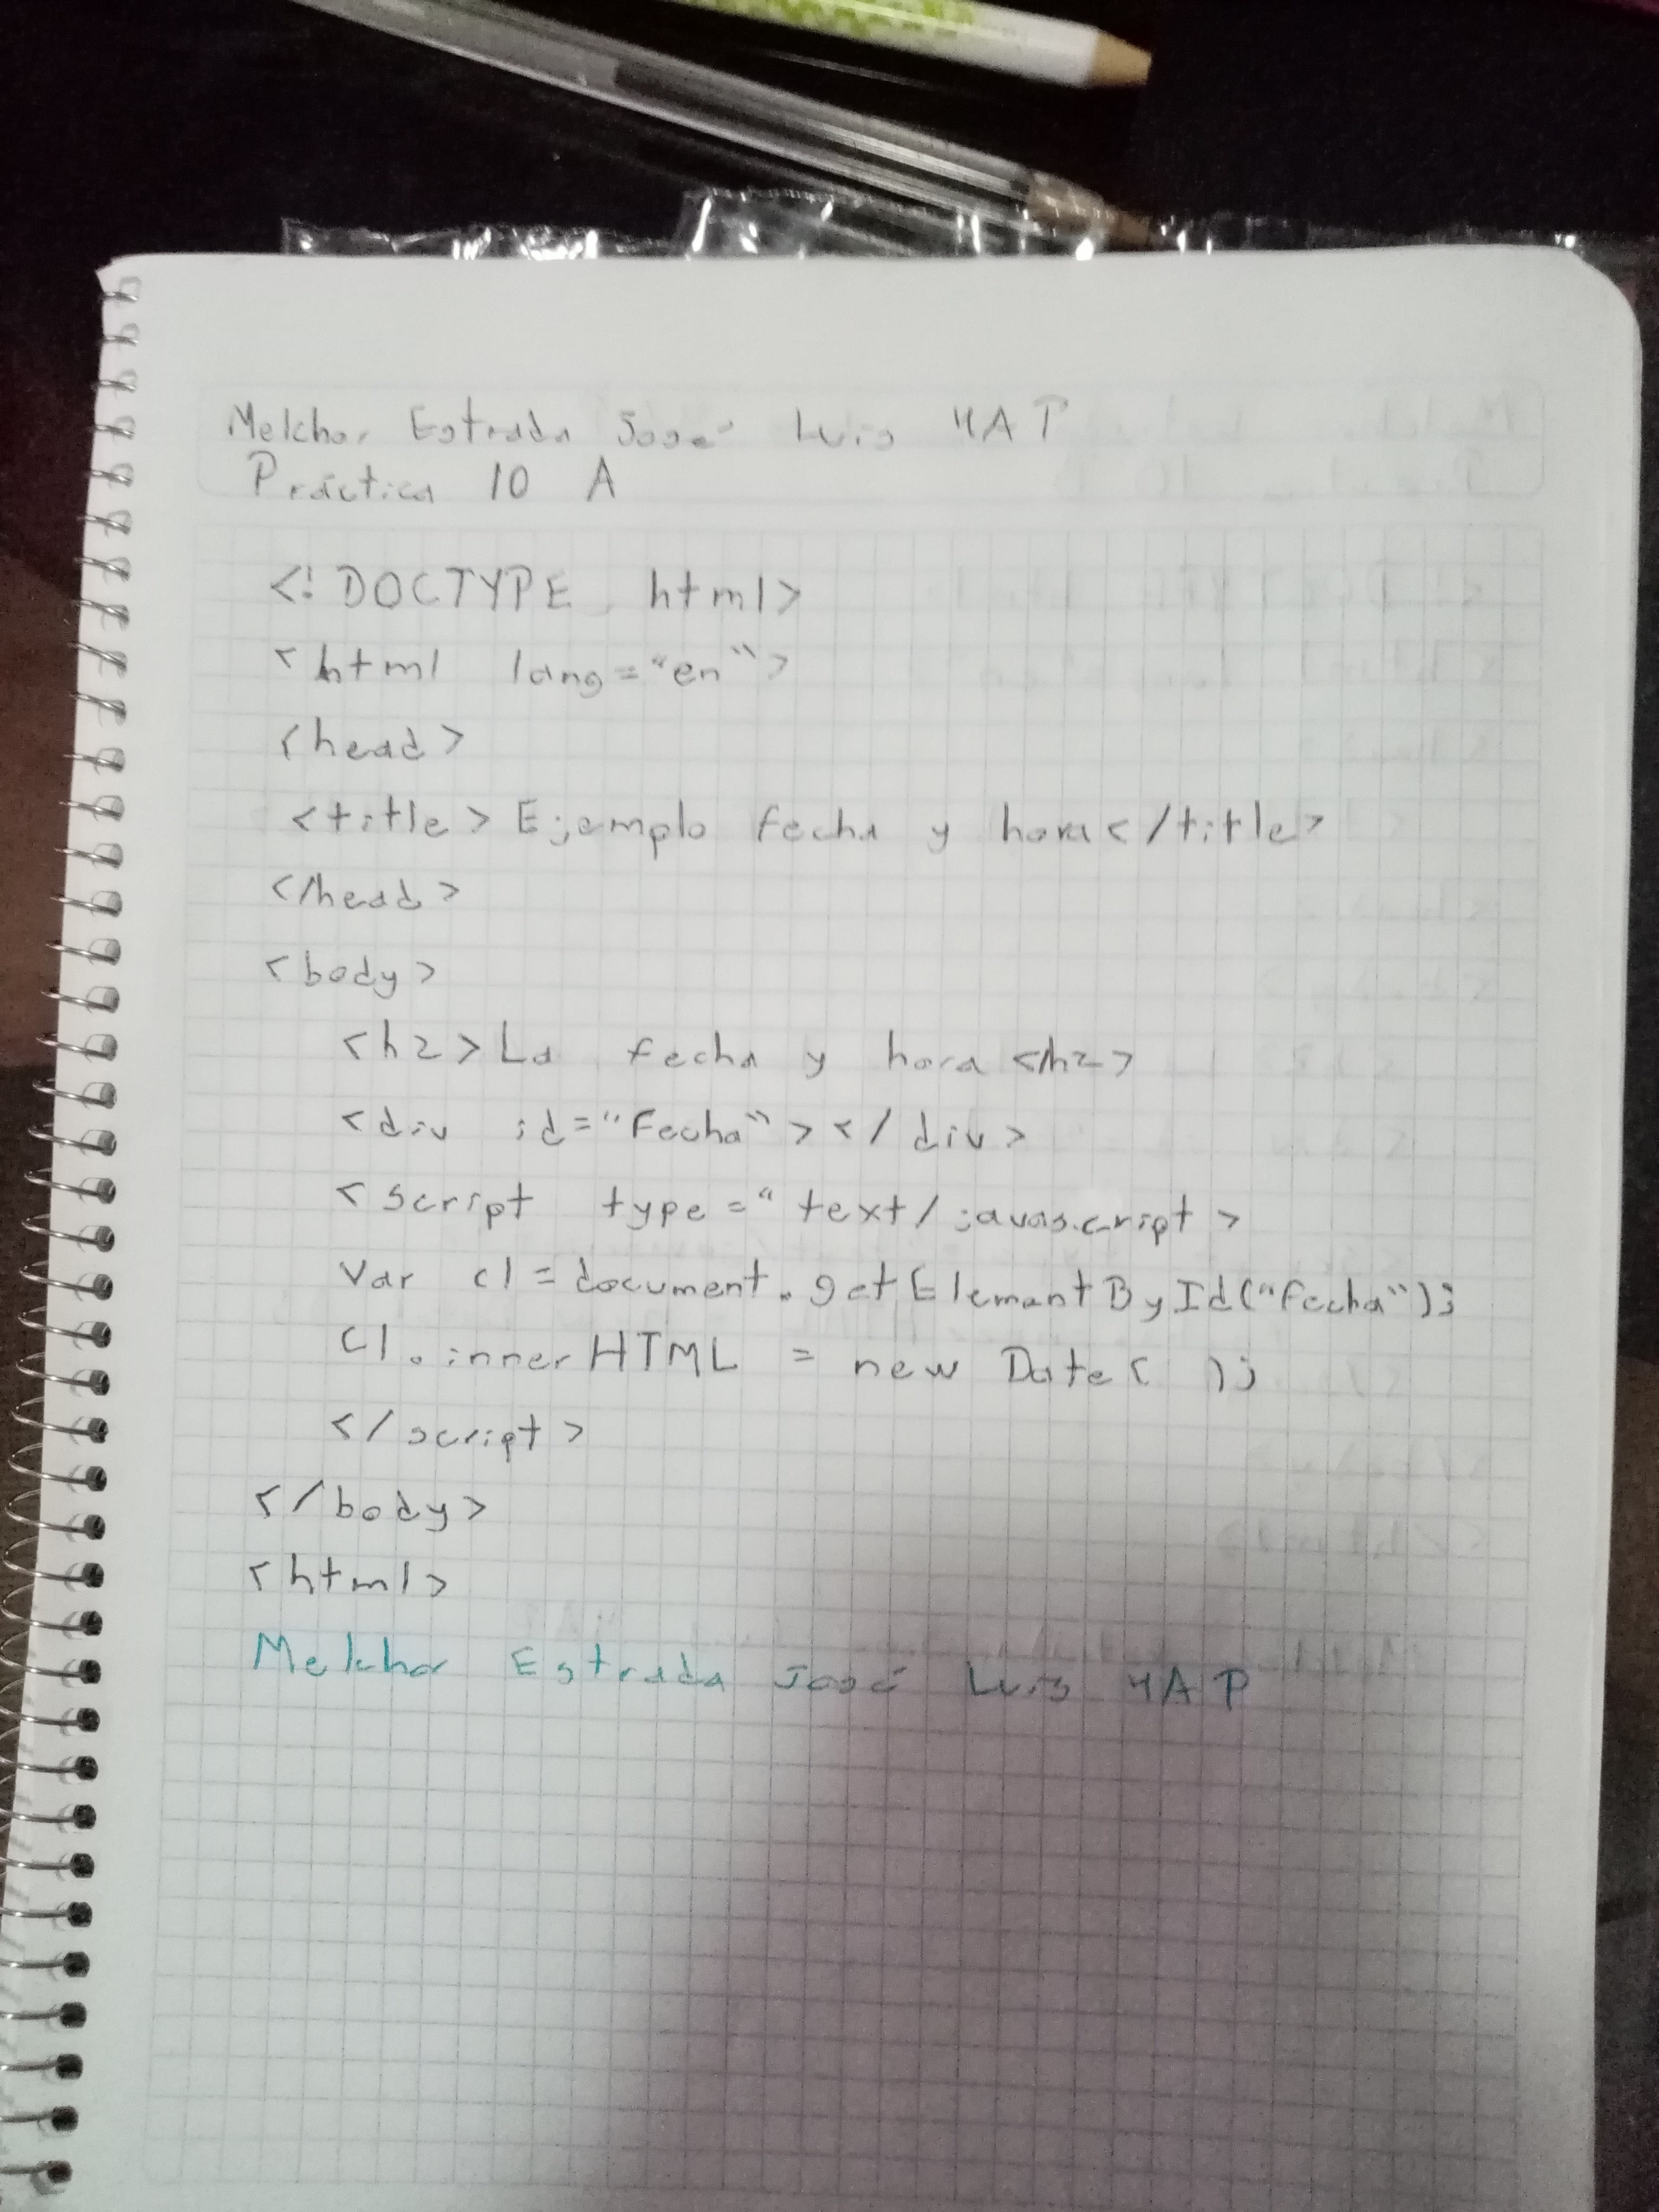 Melchor Estrada José Luis 4AP
Práctica 10 A
<!DOCTYPE html>
<html lang="en">
<head>
<title>Ejemplo fecha y hora</title>
</head>
<body>
<h2>La fecha y hora </h2>
<div id="Fecha"></div>
<script type="text/javascript>
Var cl=document.getElementById("fecha");
Cl.innerHTML = new Date( );
</script>
</body>
<html>
Melchor Estrada José Luis 4AP